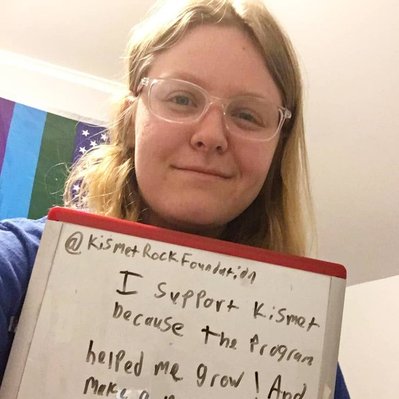 @KismetRockFoundation
I support Kismet
because the program
helped me grow! And
make a